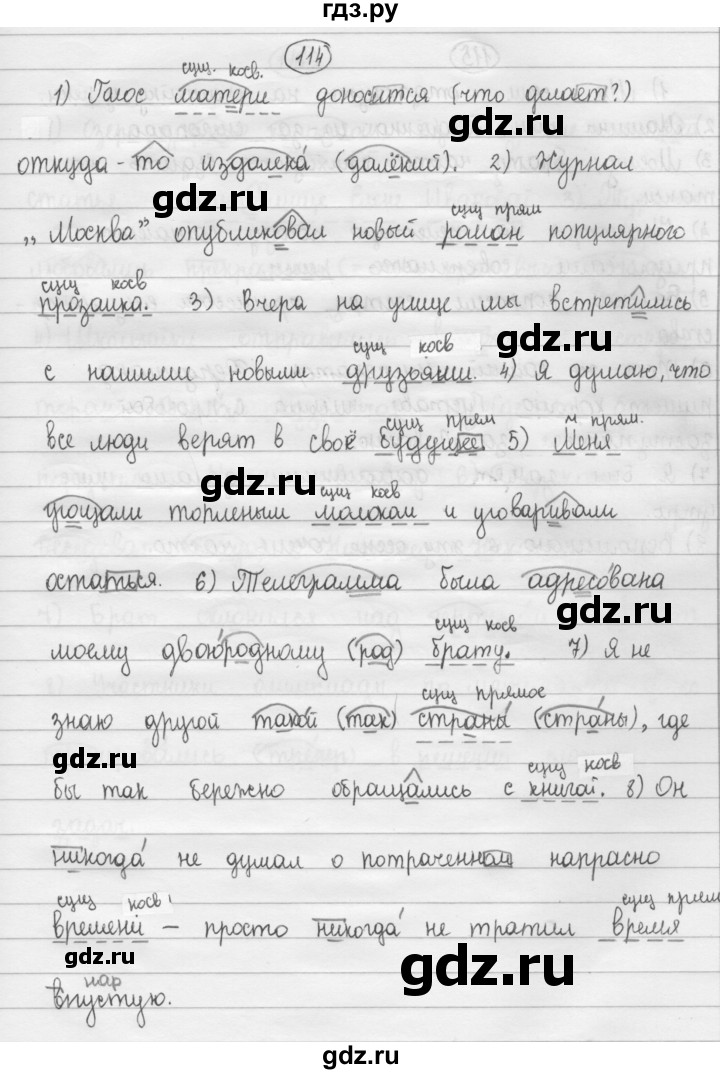 гдз.ру
114
сущ. косв.
1) Голос матери доносится (что делает?)
gdz.ru
откуда-то издалека́ (далёкий). 2) Журнал
gdz.ru gdz.ru
сущ прям
„Москва” опубликовал новый роман популярного
сущ косв
прозаика. 3) Вчера на улице мы встретились
gdz.ru gdz.ru
сущ косв
с нашими новыми друзьями. 4) Я думаю, что
сущ прям м прям.
все люди верят в своё будущее 5) Меня
gdz.ru
сущ косв
угощали топлёным молоком и уговаривали
gdz.ru
остаться. 6) Телеграмма была адресо́вана
сущ косв
моему двою́родному (род) брату. 7) Я не
gdz.ru
сущ прямое
знаю другой такой (так) страны́ (стра́ны), где
gdz.ru
сущ косв
бы так бережно обращались с книгой. 8) Он
gdz.ru
никогда́ не думал о потраченном напрасно
сущ косв сущ прям
времени – просто никогда́ не тратил время
gdz.ru gdz.ru
нар
впустую.
gdz.ru
gdz.ru